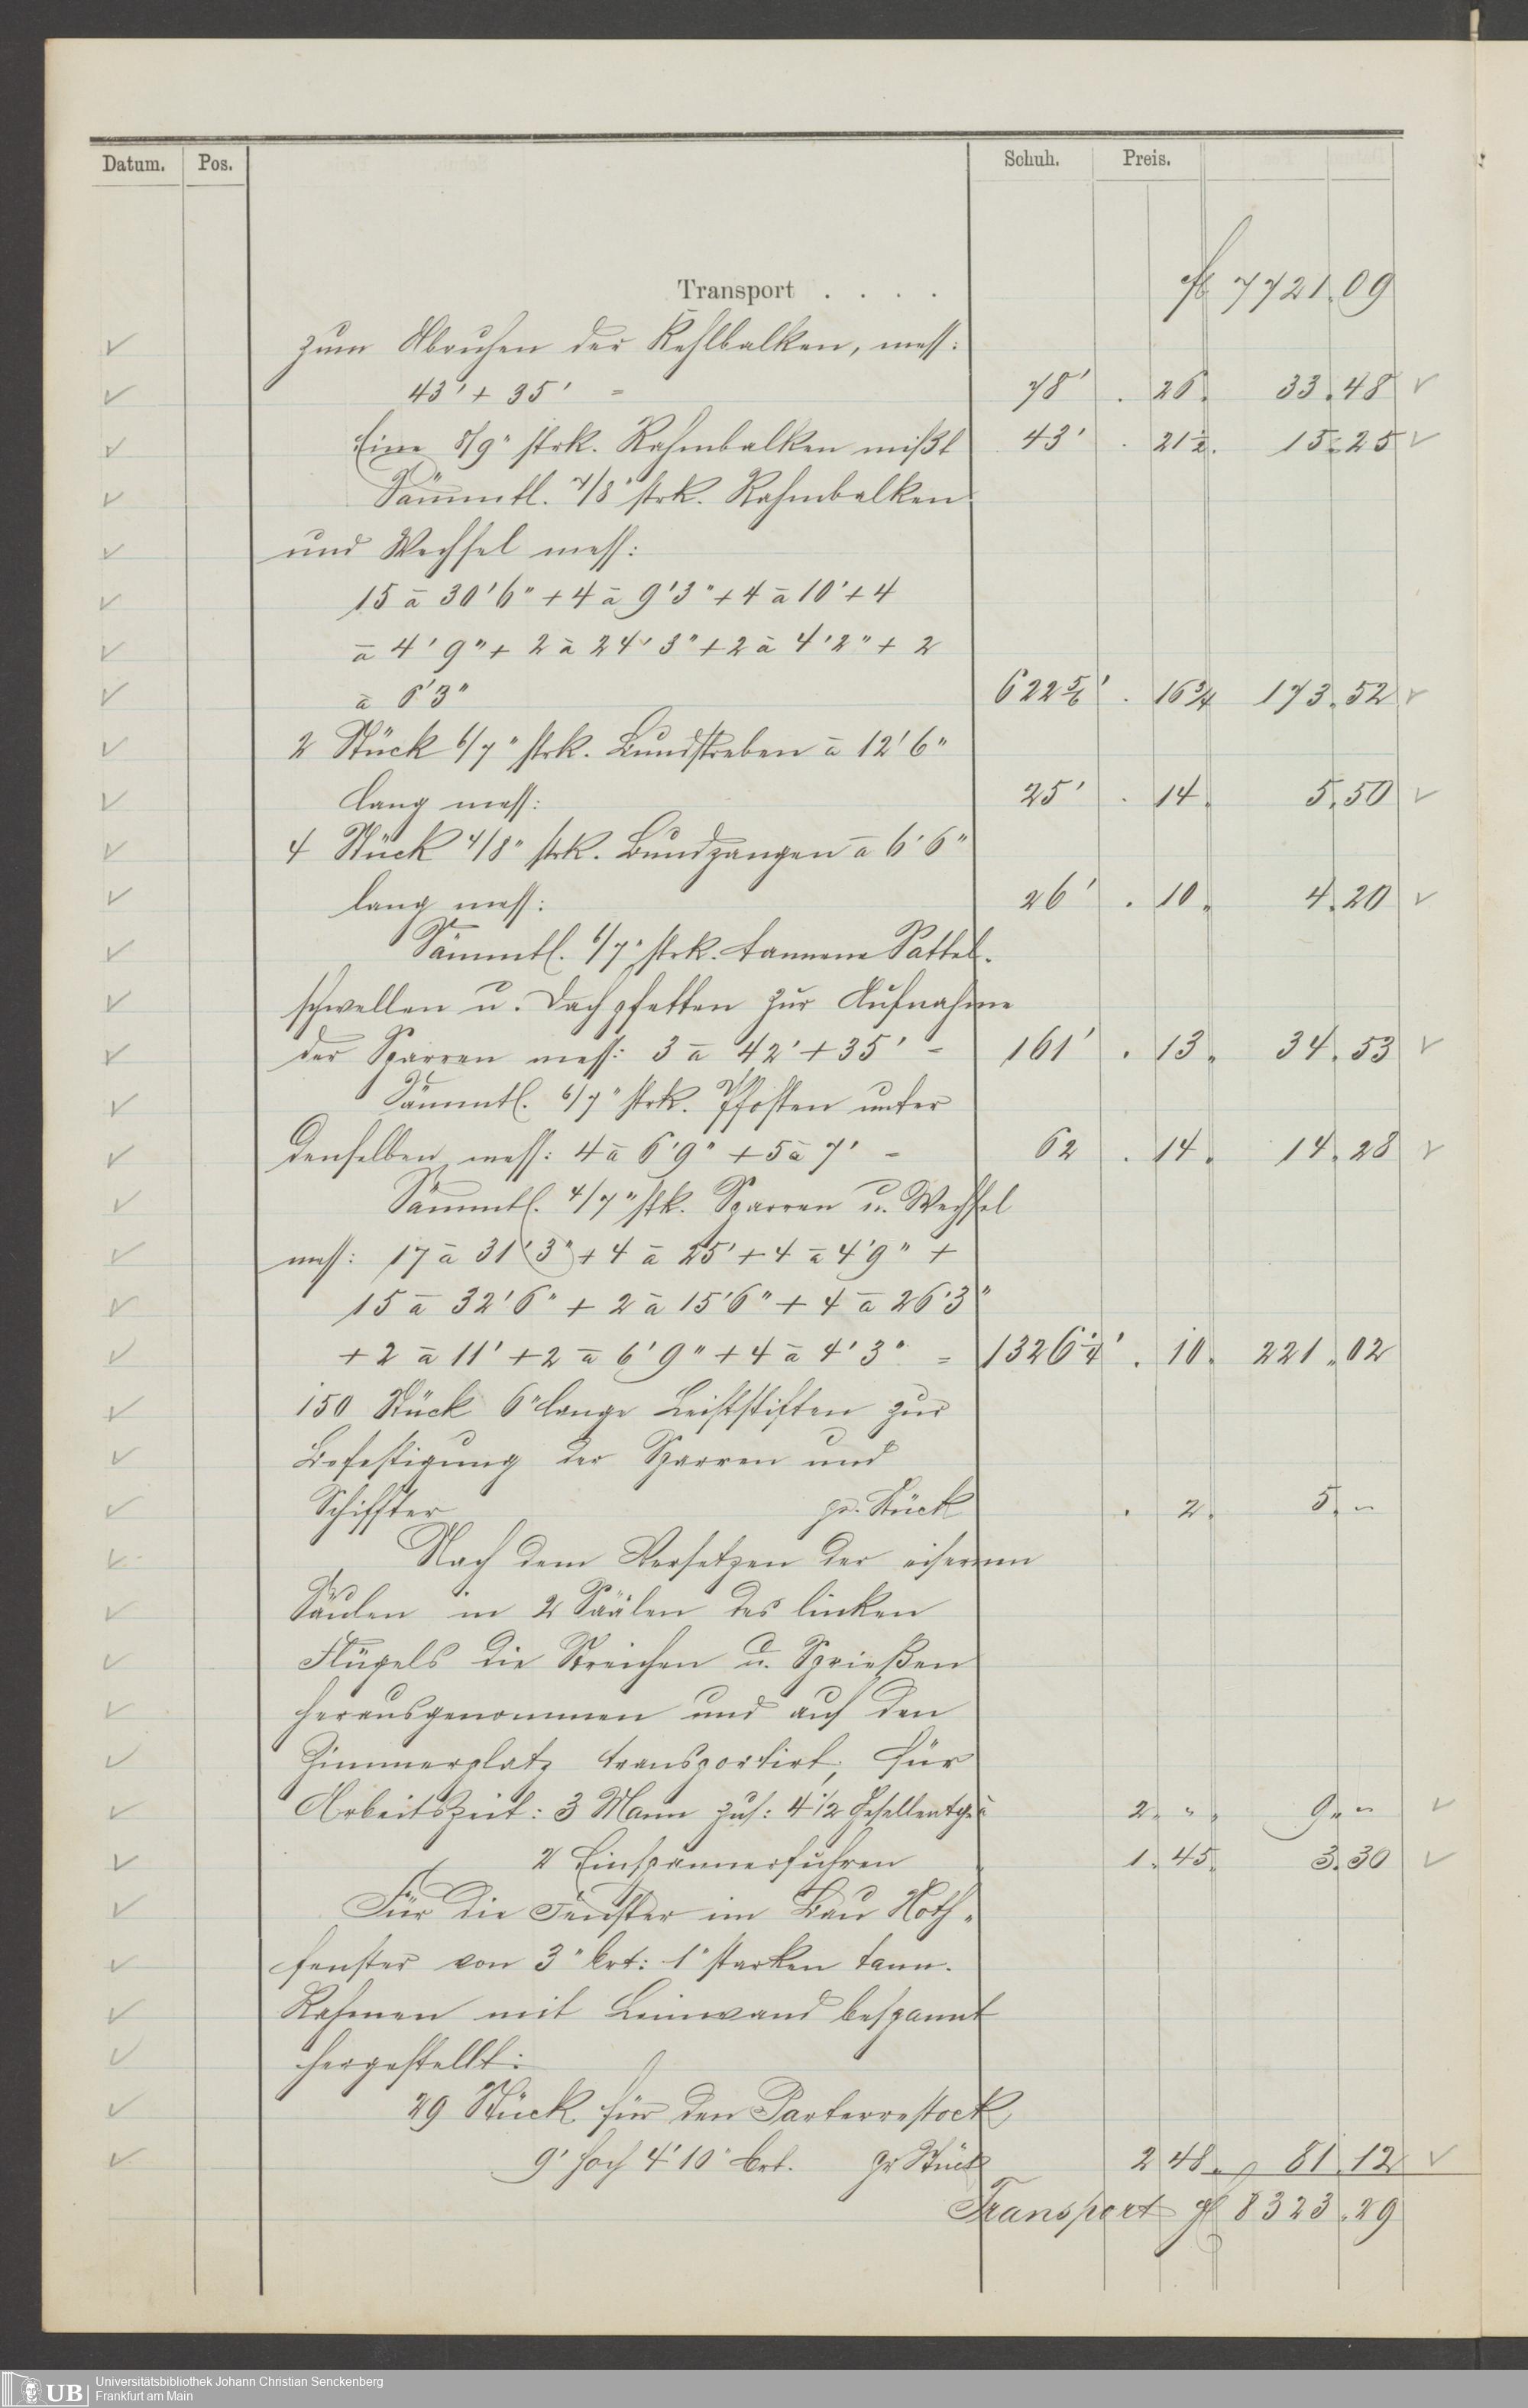 Datum. Pos. Schuh. Preis.
Transport . . . . fl 7721.09
zum Abruhen der Kehlbalken, mess:
43' + 35' = 78' . 26. 33.48
Eine 8/9" strk. Rahmbalken mißt 43' . 21½. 15.25
Sämmtl. 7/8" strk. Rahmbalken
und Wechsel mess:
15 à 30'6" + 4 à 9'3" + 4 à 10' + 4
à 4'9" + 2 à 24'3" + 2 à 4'2" + 2
à 6'3" 622 5/6' . 16¾ 173.52
2 Stück 6/7" strk. Bundstreben à 12'6"
lang mess: 25' . 14. 5.50
4 Stück 4/8" strk. Bundzangen à 6'6"
lang mess: 26' . 10. 4.20
Sämmtl. 6/7" strk. tannene Sattel-
schwellen u. Dachpfetten zur Aufnahme
der Sparren mess: 3 à 42' + 35' = 161' . 13. 34.53
Sämmtl. 6/7" strk. Pfosten unter
denselben mess: 4 à 6'9" + 5 à 7' = 62 . 14. 14.28
Sämmtl. 4/7" stk. Sparren u. Wechsel
mess: 17 à 31'3" + 4 à 25' + 4 à 4'9" +
15 à 32'6" + 2 à 15'6" + 4 à 26'3"
+ 2 à 11' + 2 à 6'9" + 4 à 4'3" = 1326¼' . 10. 221.02
150 Stück 6" lange Leiststiften zur
Befestigung der Sparren und
Schiffter pr. Stück . 2. 5.„
Nach dem Versetzen der eisernen
Säulen in 2 Säälen des linken
Flügels die Streichen u. Sprießen
herausgenommen und auf den
Zimmerplatz transportirt, für
Arbeitszeit: 3 Mann zus: 4½ Gesellentge à 2. „ . 9.„
2 Einspännerfuhren 1.45. 3.30
Für die Fenster im Bau Noth-
fenster von 3" brt: 1" starken tann.
Rahmen mit Leinwand bespannt
hergestellt:
29 Stück für den Parterrestock
9' hoch 4'10" brt. pr Stück 2 48. 81.12
Transport fl 8323.29
UB Universitätsbibliothek Johann Christian Senckenberg
Frankfurt am Main